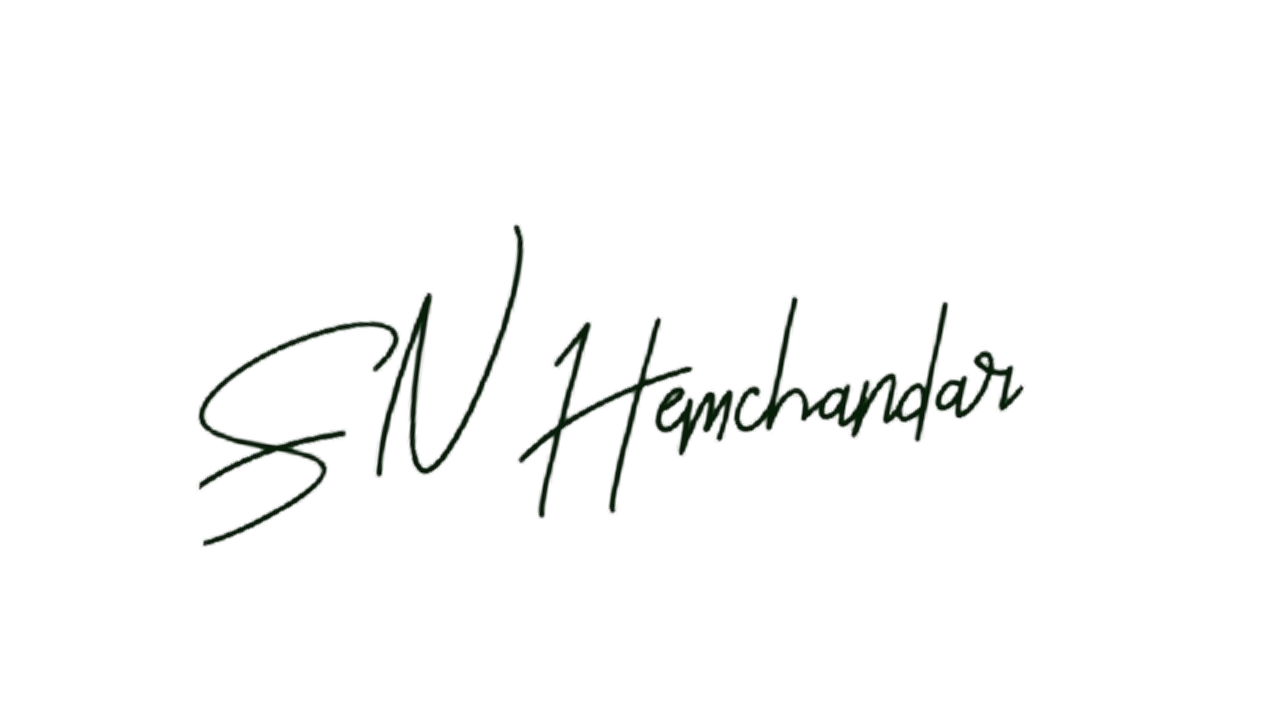 SN Hemchandar